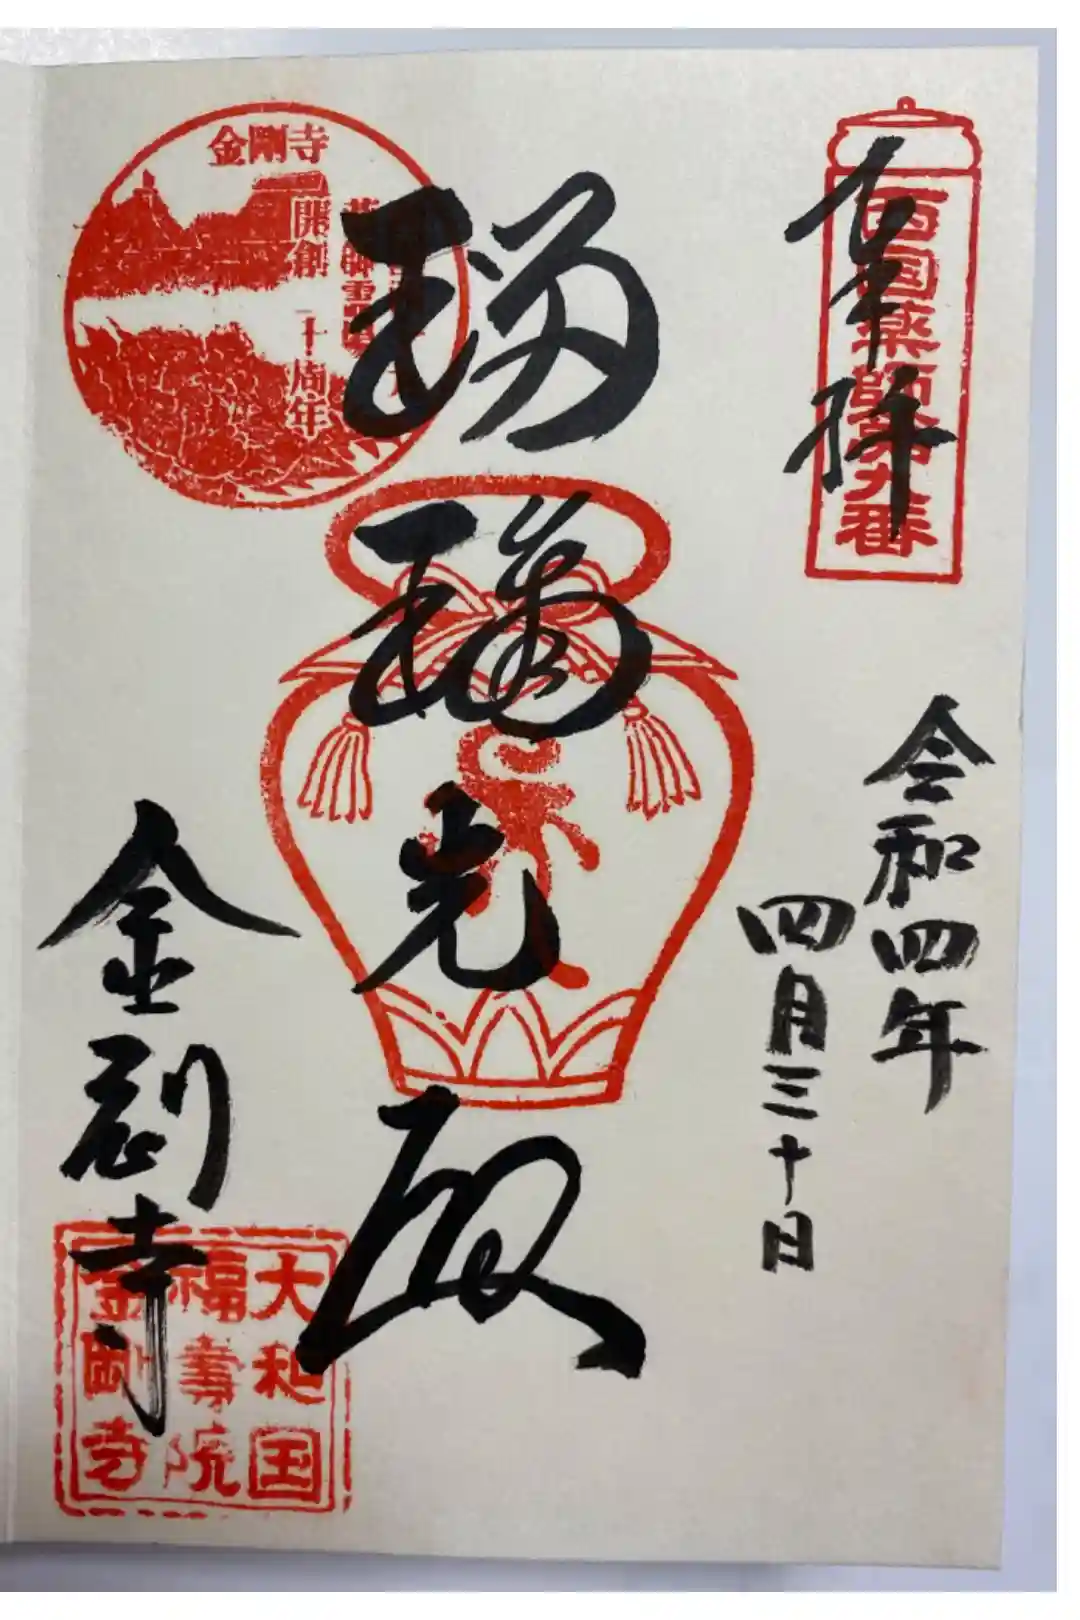 奉拝
西国薬師第九番
令和四年
四月三十日
瑠璃光殿
金剛寺
開創二十周年
金剛寺
大和国
福寿院
金剛寺